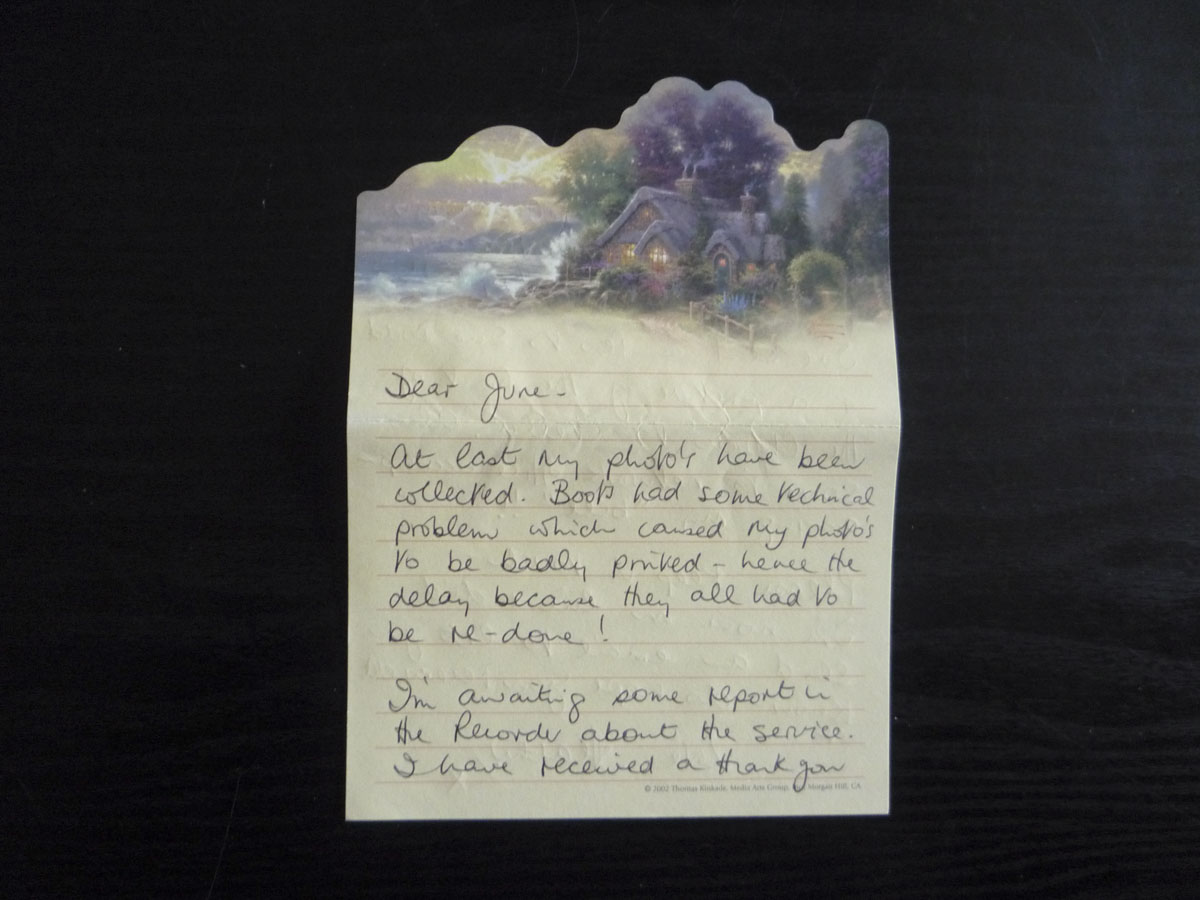 Dear June -
At last my photo's have been
collected. Boots had some technical
problem which caused my photo's
to be badly printed - hence the
delay because they all had to
be re-done!
I'm awaiting some report in
the Recorder about the service.
I have received a thank you
© 2002 Thomas Kinkade, Media Arts Group, Morgan Hill, CA